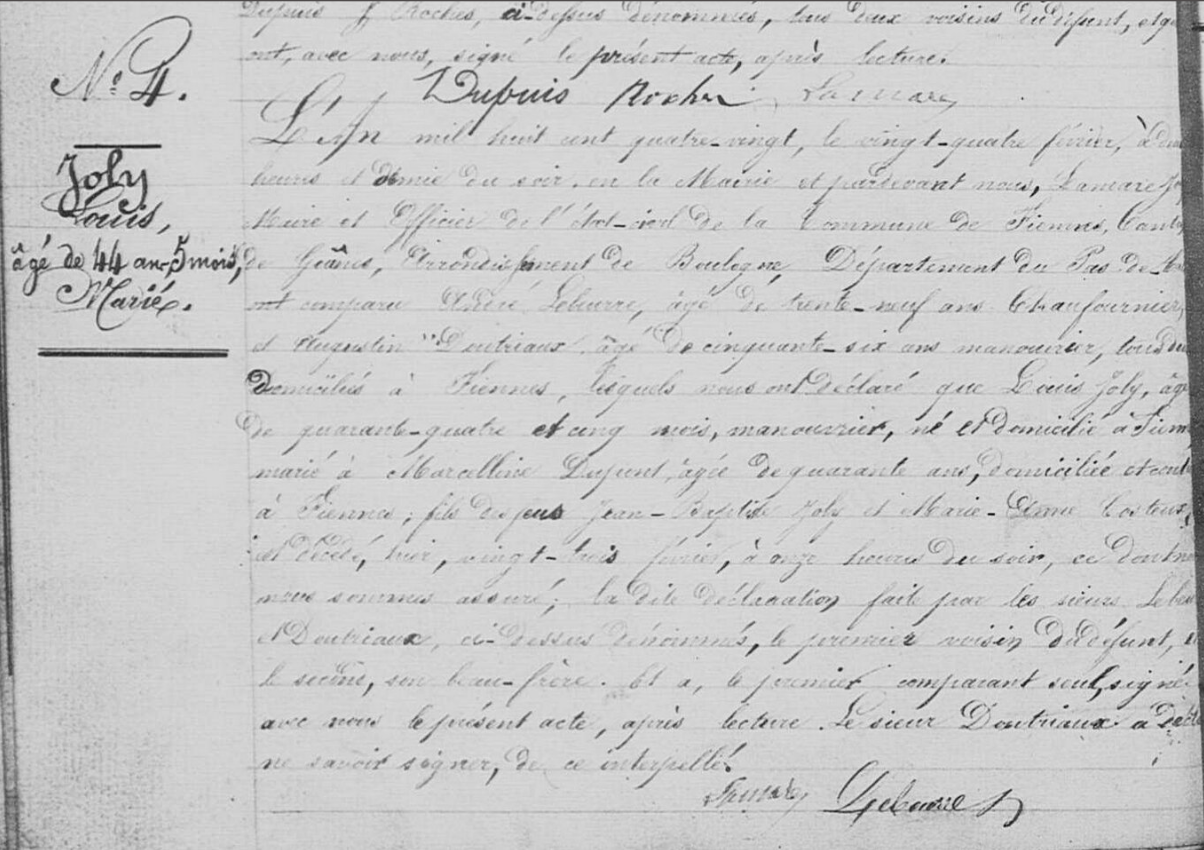 Dupuis & Roches, ci-dessus dénommés, tous deux voisins du défunt, et q
ont, avec nous, signé le présent acte, après lecture.
Dupuis Roches Lamare
N° 4.
Joly
Louis,
âgé de 44 ans 5 mois,
Marié.
L'An mil huit cent quatre-vingt, le vingt-quatre février, à
heures et demie du soir, en la Mairie et pardevant nous, Lamare
Maire et Officier de l'état-civil de la Commune de Fiennes, Cant
de Guînes, Arrondissement de Boulogne, Département du Pas de
ont comparu Leburre, âgé de trente-neuf ans Chaufournier,
et Augustin Doutriaux, âgé de cinquante-six ans manouvrier, tous d
Domiciliés à Fiennes, lesquels nous ont déclaré que Louis Joly, âg
de quarante-quatre et cinq mois, manouvrier, né et domicilié à Fienn
marié à Marcelline Dupont, âgée de quarante ans, domiciliée
à Fiennes ; fils des feus Jean-Baptiste Joly et Marie-
est décédé, hier, vingt-trois février, à onze heures du soir, ce dont n
nous sommes assuré ; la dite déclaration faite par les sieurs Leb
et Doutriaux, ci-dessus dénommés, le premier voisin du défunt,
le second, son beau-frère. Et a, le premier comparant seul, signé
avec nous le présent acte, après lecture. Le sieur Doutriaux a
ne savoir signer, de ce interpellé.
Lamare Leburre